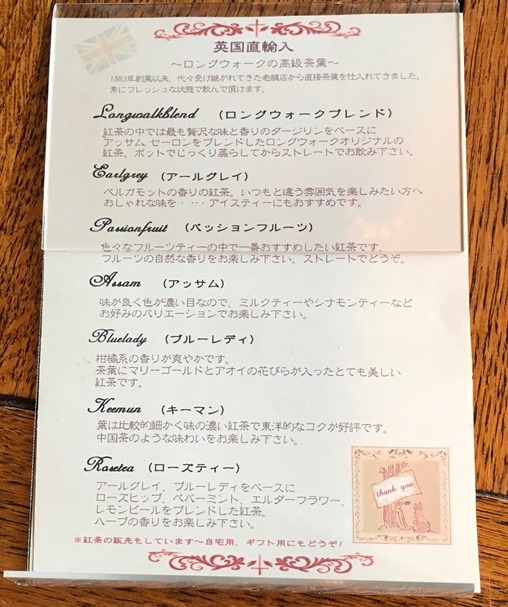 英国直輸入
～ロングウォークの高級茶葉～
1883年創業以来、代々受け継がれてきた老舗店から直接茶葉を仕入れてきました。
常にフレッシュな状態で飲んで頂けます。
Longwalkblend (ロングウォークブレンド)
紅茶の中では最も贅沢な味と香りのダージリンをベースに
アッサム、セーロンをブレンドしたロングウォークオリジナルの
紅茶。ポットでじっくり蒸らしてからストレートでお飲み下さい。
Earlgrey (アールグレイ)
ベルガモットの香りの紅茶。いつもと違う雰囲気を楽しみたい方へ
おしゃれな味を・・・アイスティーにもおすすめです。
Passionfruit (パッションフルーツ)
色々なフルーツティーの中で一番おすすめしたい紅茶です。
フルーツの自然な香りをお楽しみ下さい。ストレートでどうぞ。
Assam (アッサム)
味が良く色が濃い目なので、ミルクティーやシナモンティーなど
お好みのバリエーションでお楽しみ下さい。
Bluelady (ブルーレディ)
柑橘系の香りが爽やかです。
茶葉にマリーゴールドとアオイの花びらが入ったとても美しい
紅茶です。
Keemun (キーマン)
葉は比較的細かく味の濃い紅茶で東洋的なコクが好評です。
中国茶のような味わいをお楽しみ下さい。
Rosetea (ローズティー)
アールグレイ、ブルーレディをベースに
ローズヒップ、ペパーミント、エルダーフラワー、
レモンピールをブレンドした紅茶。
ハーブの香りをお楽しみ下さい。
thank you
※紅茶の販売もしています～自宅用、ギフト用にもどうぞ！